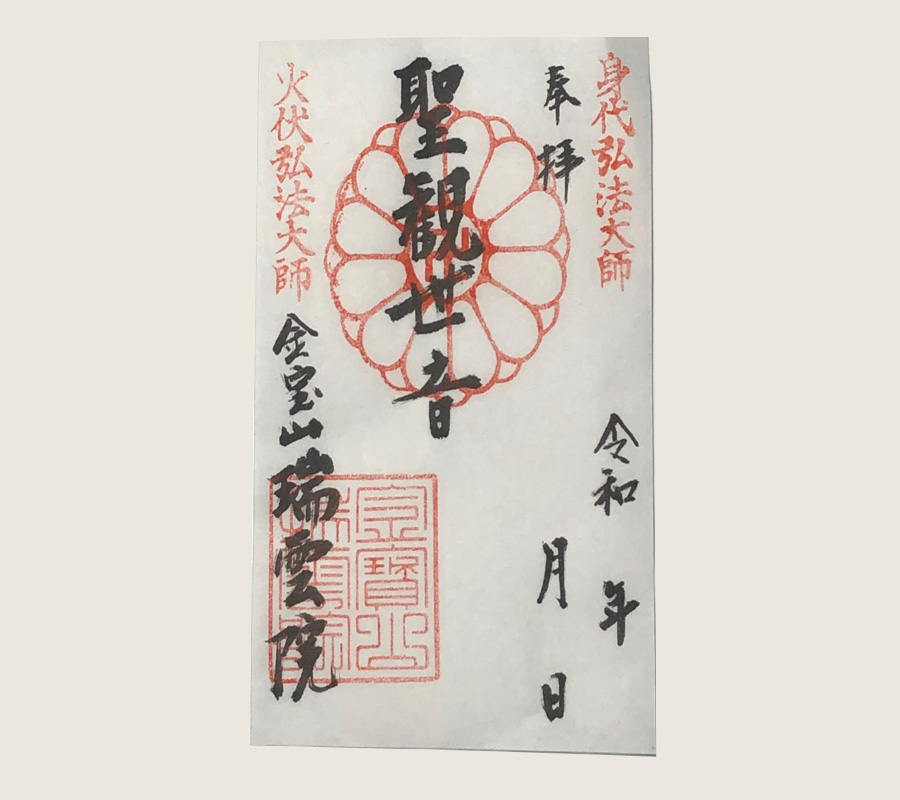 身代弘法大師
奉拝
令和 年
月 日
聖観世音
火伏弘法大師
金宝山
瑞雲院